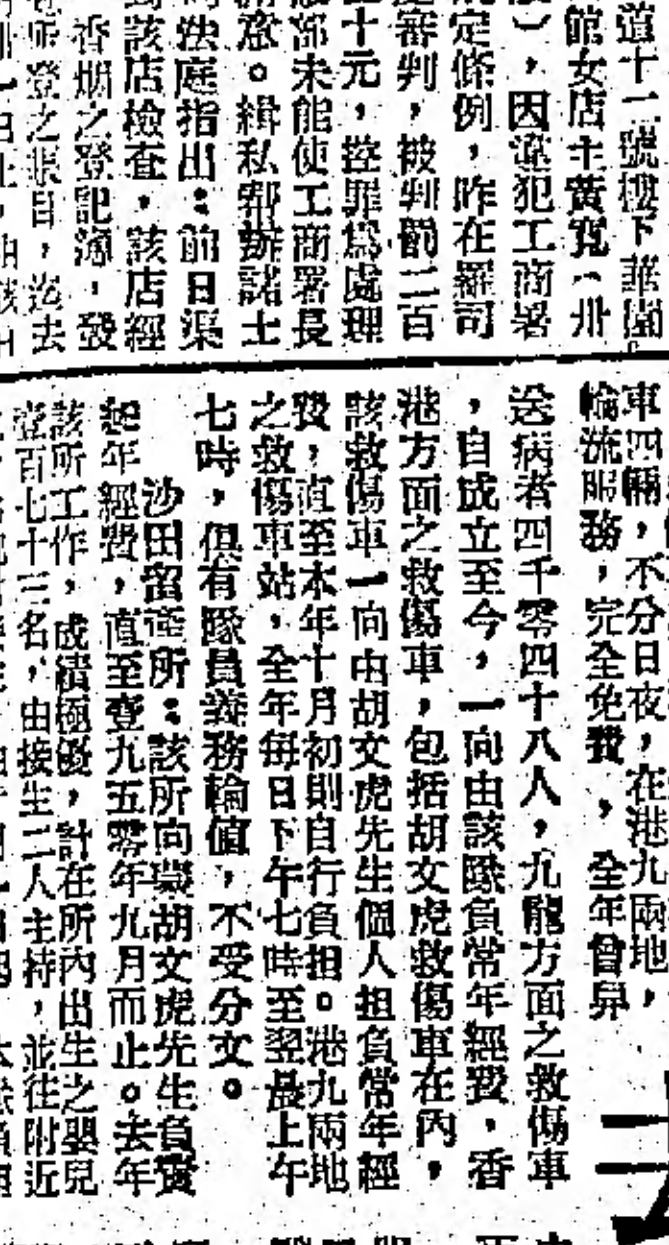 道十二號樓下華園
館女店主黃寬︵卅
︶，因違犯工商署
定條例，昨在羅司
審判，被判罰二百
十元，控罪爲處理
都未能使工商署長
意。緝私幇辦諸士
法庭指出：前日渠
該店檢查，該店經
香烟之登記簿，發
所登之賬目，迄去
車四輛，不分日夜，在港九兩地，
輪流服務，完全免費，全年曾舁
送病者四千零四十八人，九龍方面之救傷車
，自成立至今，一向由該隊負常年經費，香
港方面之救傷車，包括胡文虎救傷車在內，
該救傷車一向由胡文虎先生個人担負常年經
費，直至本年十月初則自行負担。港九兩地
之救傷車站，全年每日下午七時至翌晨上午
七時，俱有隊員義務輪值，不受分文。
沙田留產所：該所向蒙胡文虎先生負責
起年經費，直至壹九五零年九月而止。去年
該所工作，成績極優，計在所內出生之嬰兒
壹百七十三名，由接生二人主持，並往附近